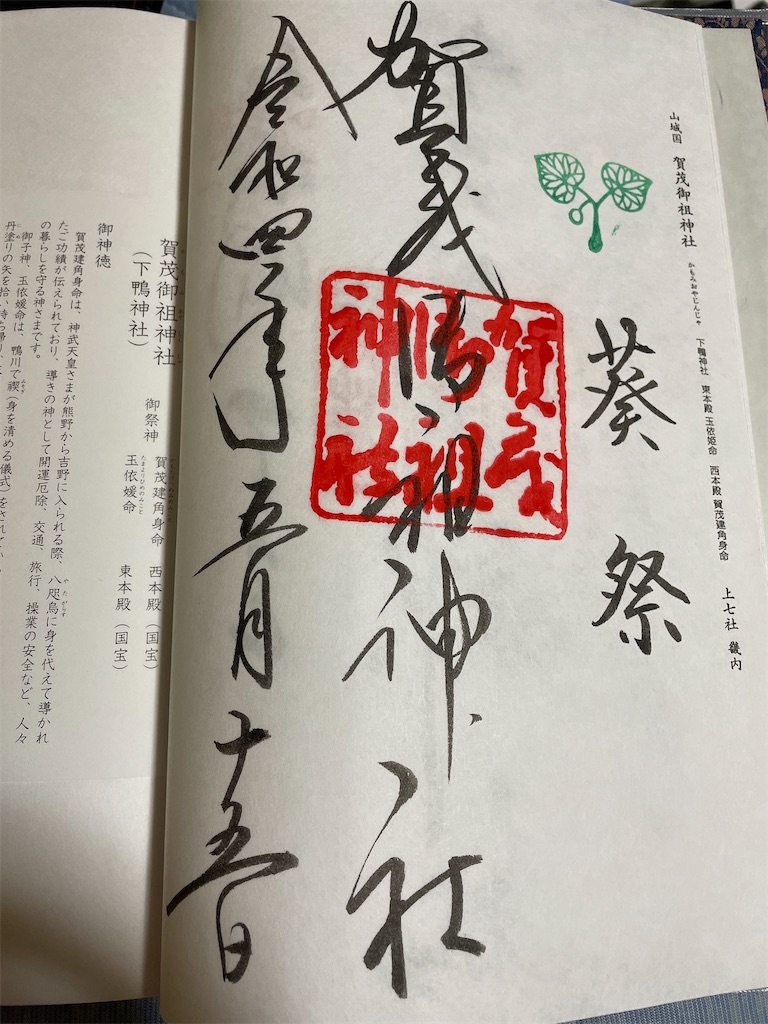 山城国 賀茂御祖神社 かもみおやじんじゃ 下鴨神社 東本殿 玉依姫命 西本殿 賀茂建角身命 上七社 畿内
葵祭
賀茂御祖神社
賀茂
御祖
神社
令和四年五月十五日
賀茂御祖神社
(下鴨神社)
御祭神 賀茂建角身命 西本殿(国宝)
玉依媛命 東本殿(国宝)
たまよりひめのみこと
御神徳
賀茂建角身命は、神武天皇さまが熊野から吉野に入られる際、八咫烏に身を代えて導かれ
やたがらす
たご功績が伝えられており、導きの神として開運厄除、交通、旅行、操業の安全など、人々
の暮らしを守る神さまです。
御子神、玉依媛命は、鴨川で禊(身を清める儀式)をされて
みそぎ
丹塗りの矢を拾い持ち帰り